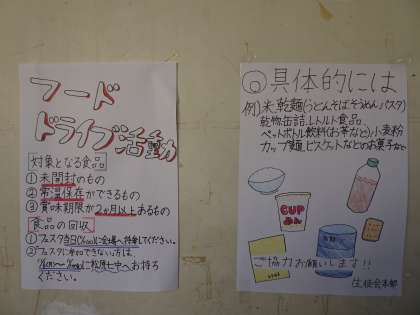 フード
ドライブ活動
対象となる食品
①未開封のもの
②常温保存ができるもの
③賞味期限が2ヶ月以上あるもの
食品の回収
①フェスタ当日に会場へ持参してください。
②フェスタに参加できない方は、
に松原七中へお持ち
ください。
◎具体的には
例)米、乾麺(うどんそばそうめんパスタ)
乾物缶詰、レトルト食品、
ペットボトル飲料(お茶など)小麦粉
カップ麺ビスケットなどのお菓子など
CUP
めん
ご協力お願いします!!
生徒会本部